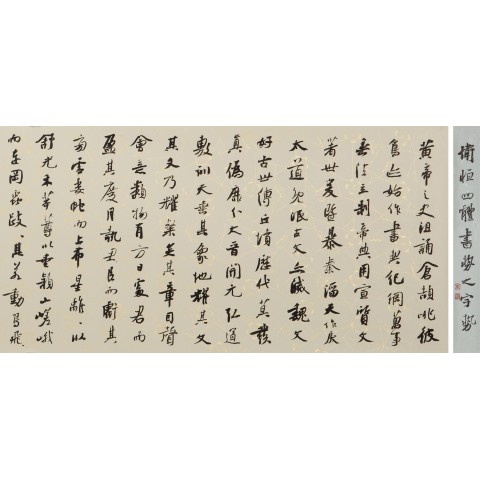 衛恒四體書勢之字勢
黃帝之史沮誦倉頡眺彼
鳥跡始作書契紀綱萬事
垂法立制帝典用宣質文
著世爰暨暴秦滔天作戾
大道既泯古文亦滅魏文
好古世傳丘墳歷代莫發
真偽靡分大晉開元弘道
敷訓天垂其象地耀其文
其文乃耀粲矣其章因聲
會意類物有方日處君而
盈其度月執臣而虧其
旁雲委蛇而上布星離離以
舒光禾卉苯䔿以垂穎山嵯峨
而連岡蟲跂跂其若動鳥飛